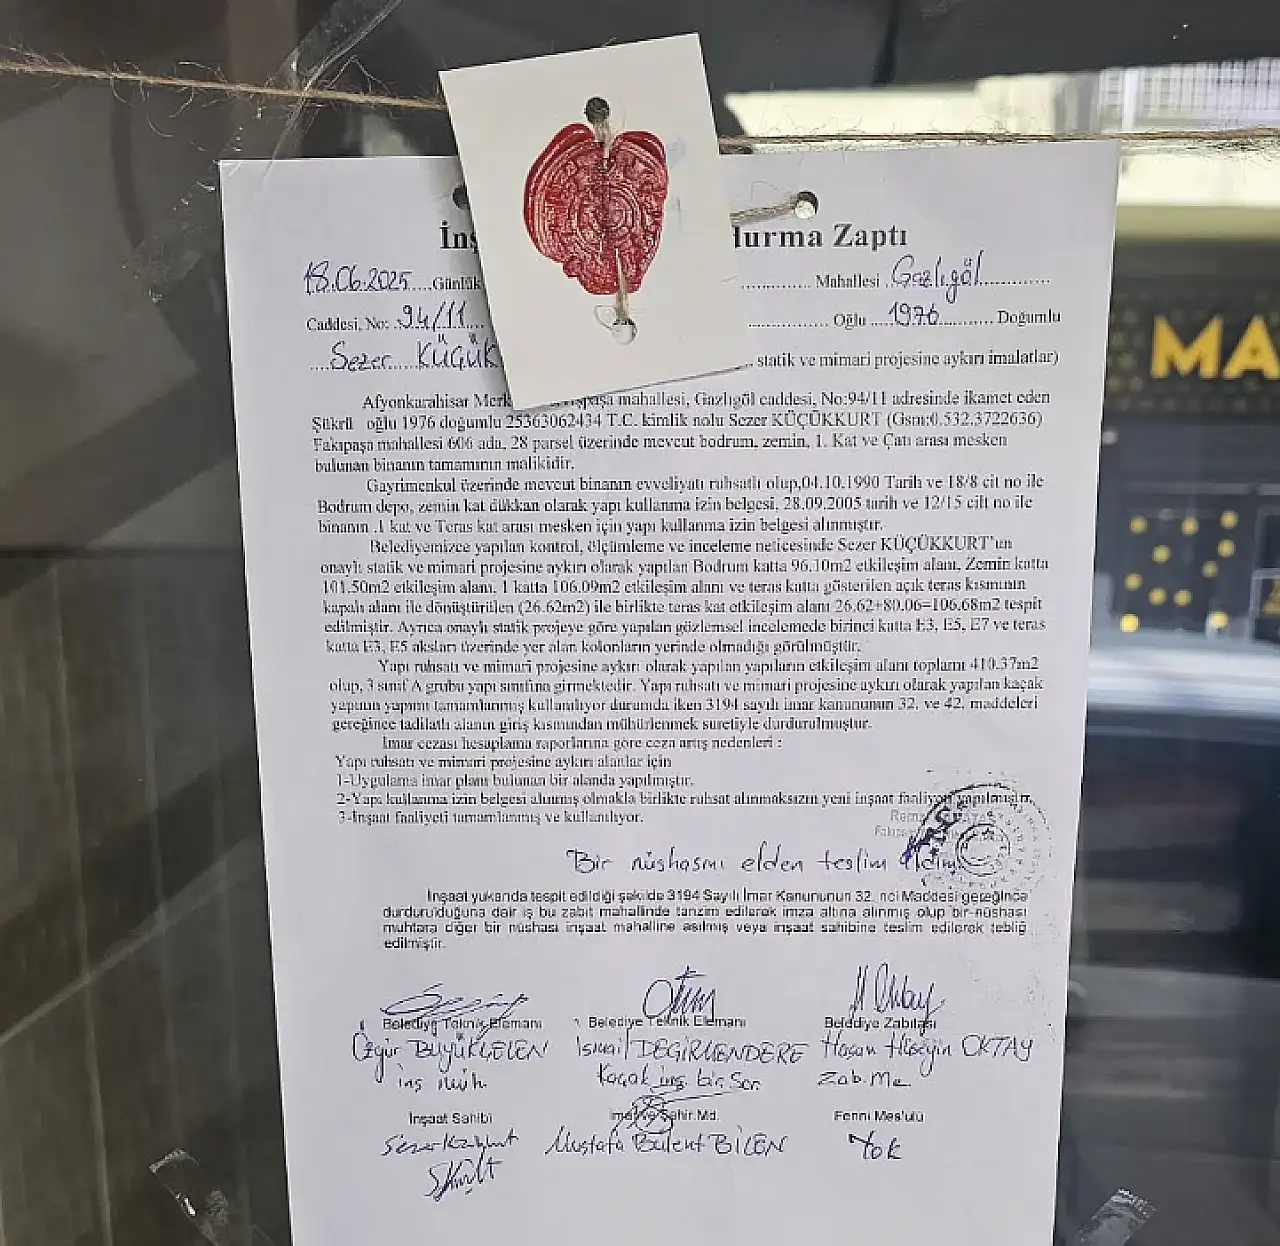 İnş durma Zaptı
18.06.2025....Günlük ............ Mahallesi .Gazlıgöl............
Caddesi, No: .94/11.... ............ Oğlu ....1976.......... Doğumlu
....Sezer......KÜÇÜK ... statik ve mimari projesine aykırı imalatlar)
Afyonkarahisar Merk paşa mahallesi, Gazlıgöl caddesi, No:94/11 adresinde ikamet eden
Şükrü oğlu 1976 doğumlu 25363062434 T.C. kimlik nolu Sezer KÜÇÜKKURT (Gsm:0.532.3722636)
Fakıpaşa mahallesi 606 ada, 28 parsel üzerinde mevcut bodrum, zemin, 1. Kat ve Çatı arası mesken
bulunan binanın tamamının malikidir.
Gayrimenkul üzerinde mevcut binanın evveliyatı ruhsatlı olup,04.10.1990 Tarih ve 18/8 cit no ile
Bodrum depo, zemin kat dükkan olarak yapı kullanma izin belgesi, 28.09.2005 tarih ve 12/15 cilt no ile
binanın .1 kat ve Teras kat arası mesken için yapı kullanma izin belgesi alınmıştır.
Belediyemizce yapılan kontrol, ölçümleme ve inceleme neticesinde Sezer KÜÇÜKKURT'un
onaylı statik ve mimari projesine aykırı olarak yapılan Bodrum katta 96.10m2 etkileşim alanı, Zemin katta
101.50m2 etkileşim alanı, 1 katta 106.09m2 etkileşim alanı ve teras katta gösterilen açık teras kısmının
kapalı alanı ile dönüştürülen (26.62m2) ile birlikte teras kat etkileşim alanı 26.62+80.06=106.68m2 tespit
edilmiştir. Ayrıca onaylı statik projeye göre yapılan gözlemsel incelemede birinci katta E3, E5, E7 ve teras
katta E3, E5 aksları üzerinde yer alan kolonların yerinde olmadığı görülmüştür.
Yapı ruhsatı ve mimari projesine aykırı olarak yapılan yapıların etkileşim alanı toplamı 410.37m2
olup, 3 sınıf A grubu yapı sınıfına girmektedir. Yapı ruhsatı ve mimari projesine aykırı olarak yapılan kaçak
yapının yapımı tamamlanmış kullanılıyor durumda iken 3194 sayılı imar kanununun 32. ve 42. maddeleri
gereğince tadilatlı alanın giriş kısmından mühürlenmek suretiyle durdurulmuştur.
İmar cezası hesaplama raporlarına göre ceza artış nedenleri :
Yapı ruhsatı ve mimari projesine aykırı alanlar için
1-Uygulama imar planı bulunan bir alanda yapılmıştır.
2-Yapı kullanma izin belgesi alınmış olmakla birlikte ruhsat alınmaksızın yeni inşaat faaliyeti yapılmıştır.
3-İnşaat faaliyeti tamamlanmış ve kullanılıyor.
Bir nüshasını elden teslim aldım
İnşaat yukarıda tespit edildiği şekilde 3194 Sayılı İmar Kanununun 32. nci Maddesi gereğince
durdurulduğuna dair iş bu zabıt mahallinde tanzim edilerek imza altına alınmış olup bir nüshası
muhtara diğer bir nüshası inşaat mahalline asılmış veya inşaat sahibine teslim edilerek tebliğ
edilmiştir.
Belediye Teknik Elemanı Belediye Teknik Elemanı Belediye Zabıtası
Özgür BÜYÜKÇELEN İsmail DEĞİRMENDERE Hasan Hüseyin OKTAY
inş müh. Kaçak inş. bir. Sor. Zab. Me.
İnşaat Sahibi İmar ve Şehir.Md. Fenni Mes'ulü
Sezer Küçükkurt Mustafa Bülent BİLEN Yok
MA